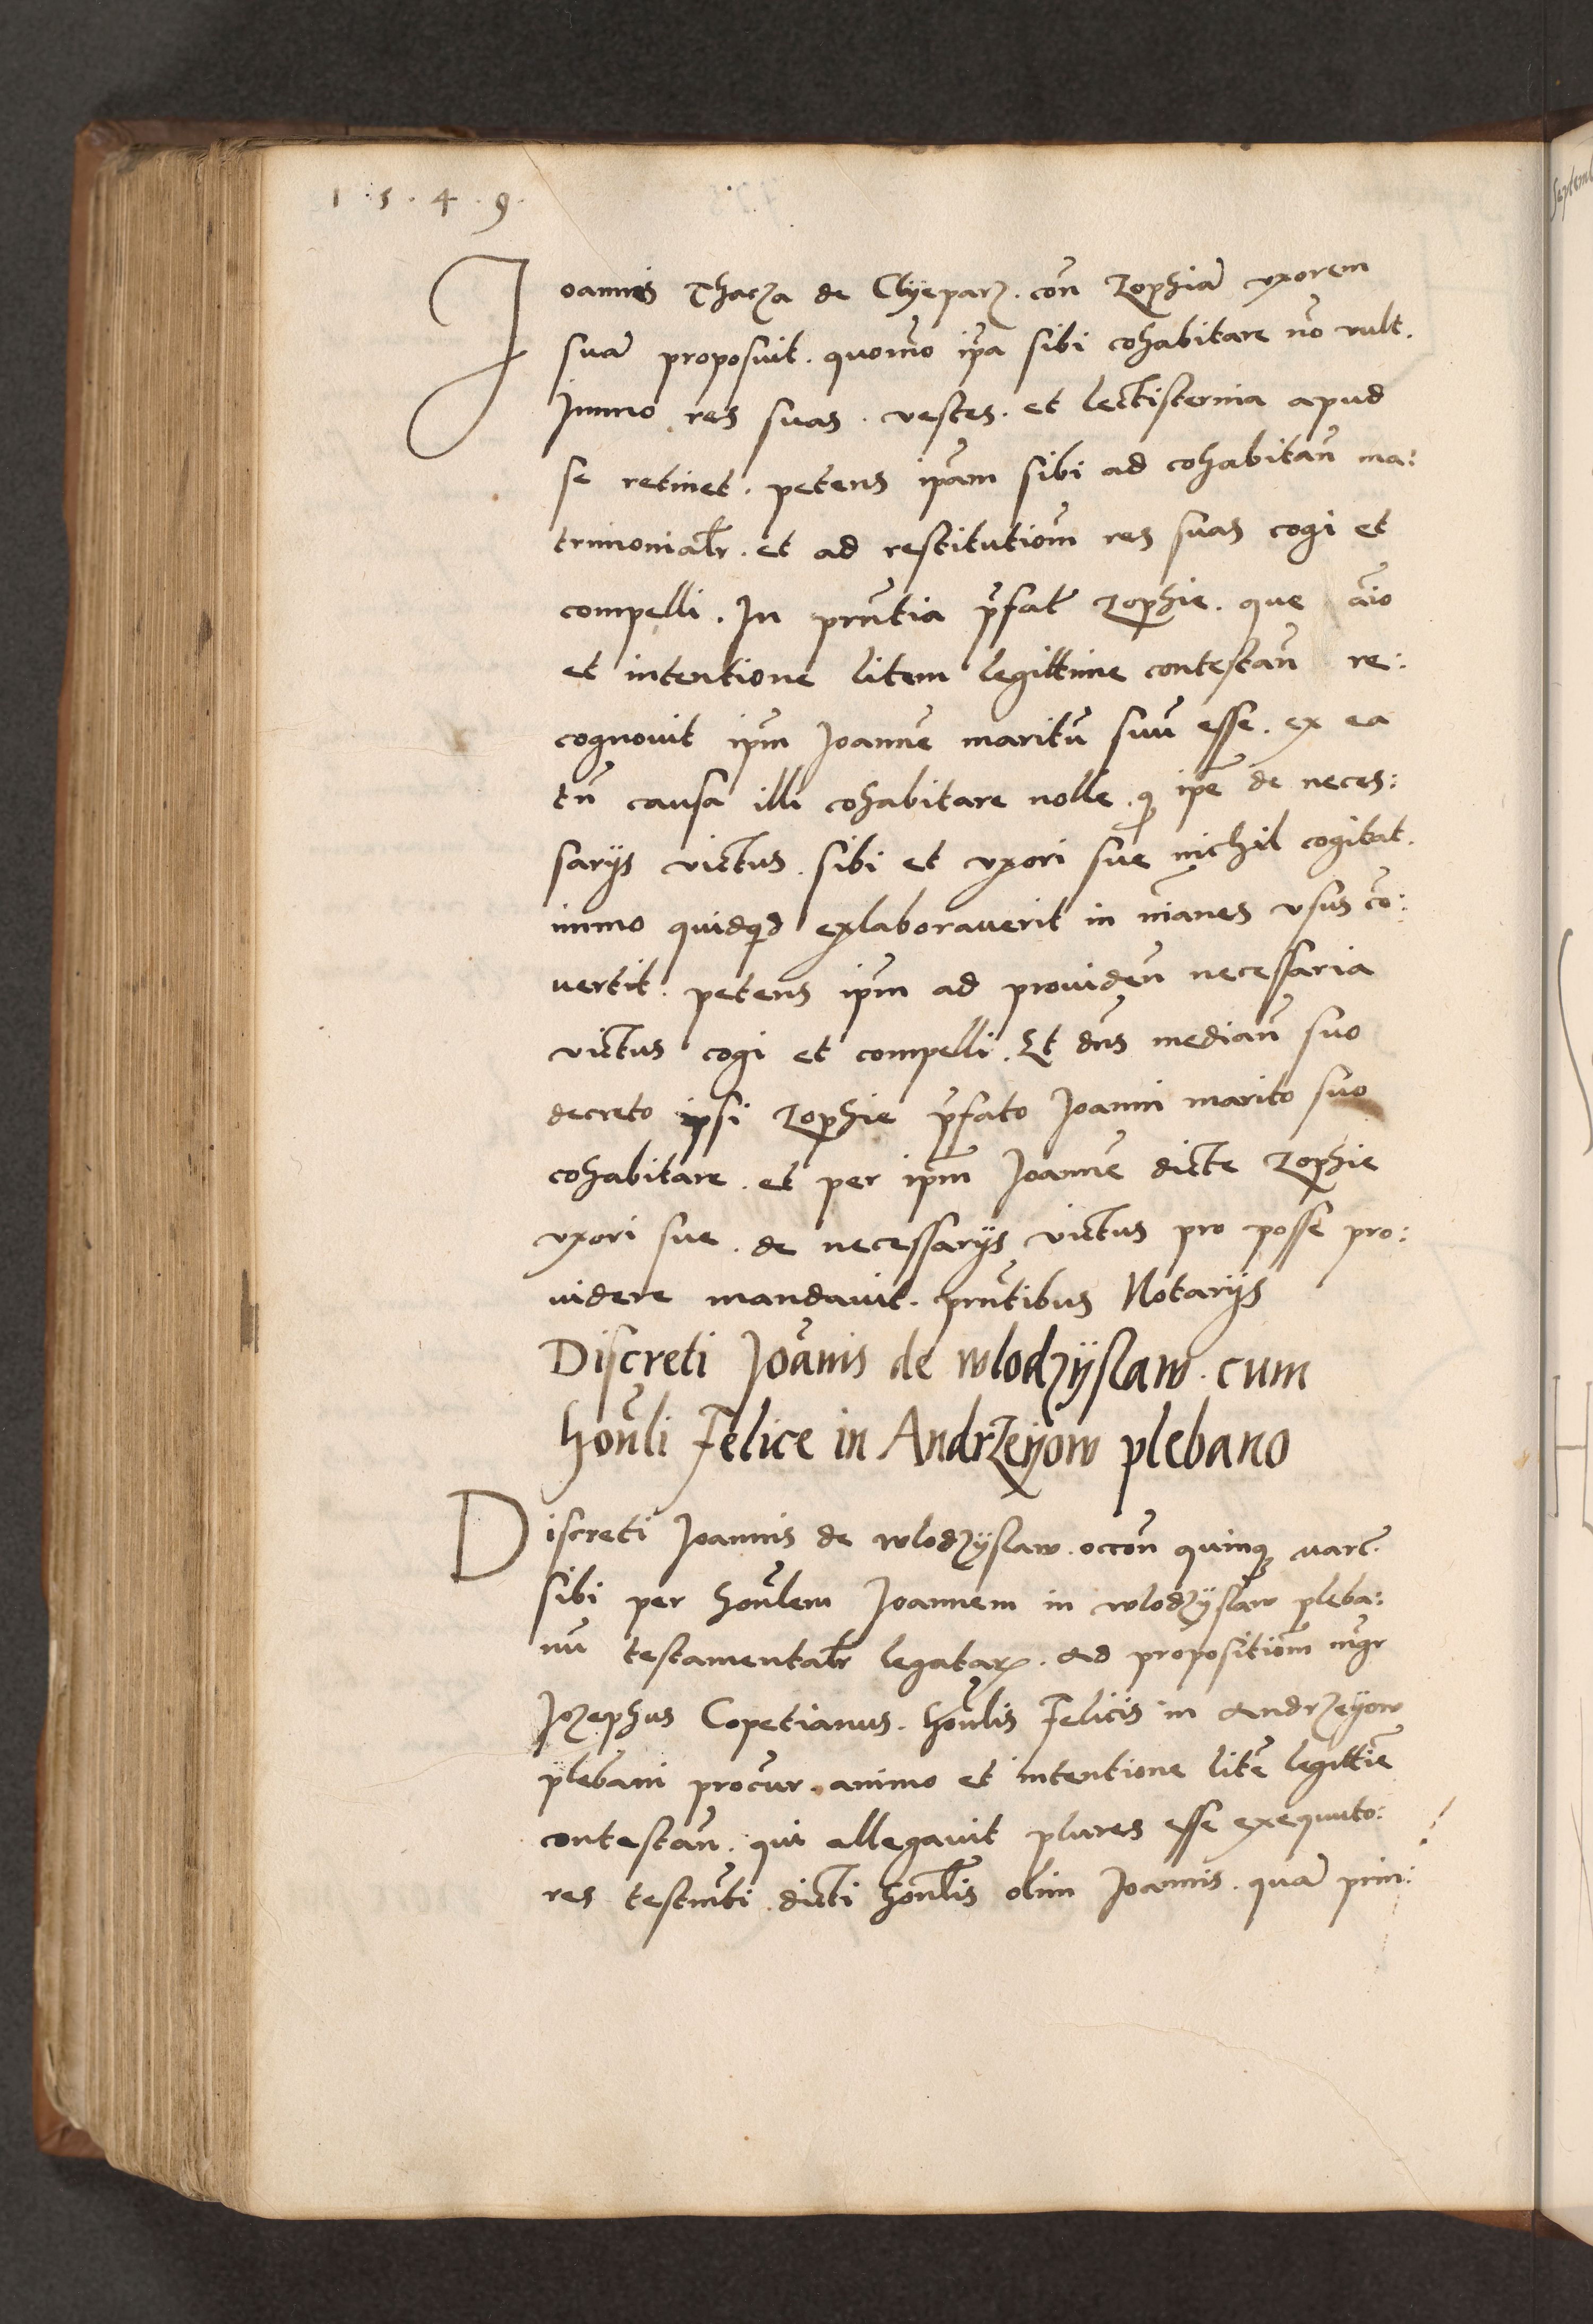 1.5.4.9.
Joannis Thacza de Clyeparz. cōn Zophiā vxorem
suā proposuit. quomō ip̄a sibi cohabitare nō vult.
Jmmo res suas. vestes. et lectisternia apud
se retinet. petens ip̄am sibi ad cohabitan̄ ma:
trimonialr̄. et ad restitutiōm res suas cogi et
compelli. Jn prn̄tia p̄fatē Zophie. que aīo
et intentione litem legittime contestan̄ re:
cognouit ip̄m Joannē maritū suū esse. ex ea
tn̄ causa illi cohabitare nolle. q̄ ip̄e de neces:
sarijs victus. sibi et vxori sue nichil cogitat.
immo quidq̄d exlaborauerit in inanes vsus cō:
uertit. petens ip̄m ad prouiden̄ necessaria
victus cogi et compelli. Et dn̄s median̄ suo
decreto ipsi Zophie p̄fato Joanni marito suo
cohabitare. et per ip̄m Joannē dicte Zophie
vxori sue. de necessarijs victus pro posse pro:
uidere mandauit. prn̄tibus Notarijs
Discreti Joānis de wlodzyslaw. cum
hon̄li Felice in Andrzeyow plebano
Discreti Joannis de wlodzyslaw. occōn quinq̄ marc̄.
sibi per hon̄lem Joannem in wlodzyslaw pleba:
nū testamentalr̄ legatarꝫ. ad propositiōm mgr̄
Jozephus Copetianus. hon̄lis Felicis in Andrzeyow
plebani procur̄. animo et intentione litē legittīe
contestan̄. qui allegauit plures esse exequuto:
res testm̄ti dicti hon̄lis olim Joannis. quā prin:
Septemb